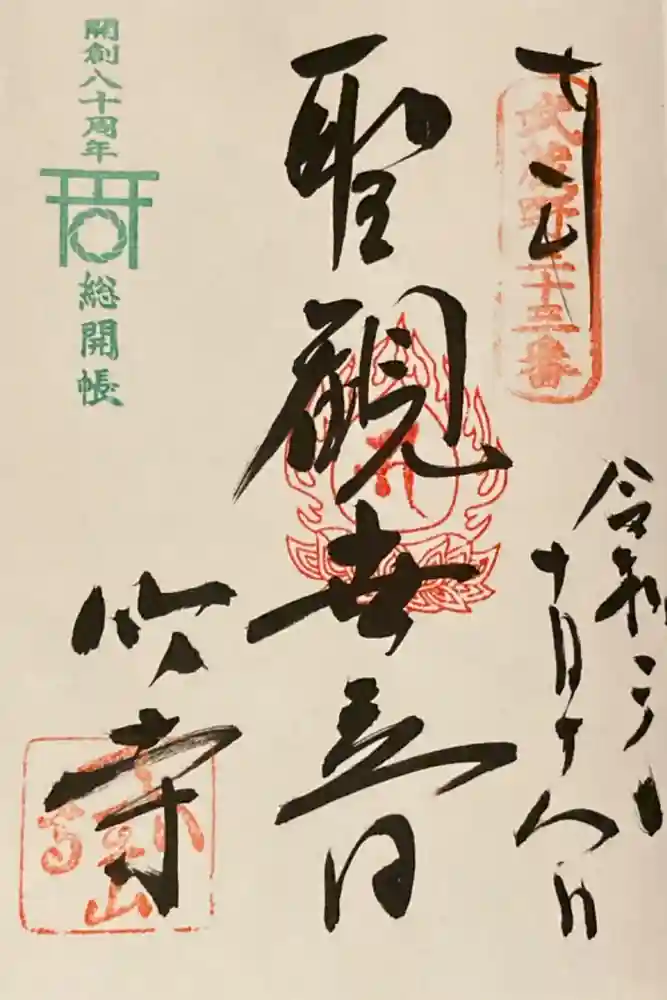 奉拝
武蔵野三十三番
令和二年
十月十八日
聖觀世音
開創八十周年
総開帳
竹寺